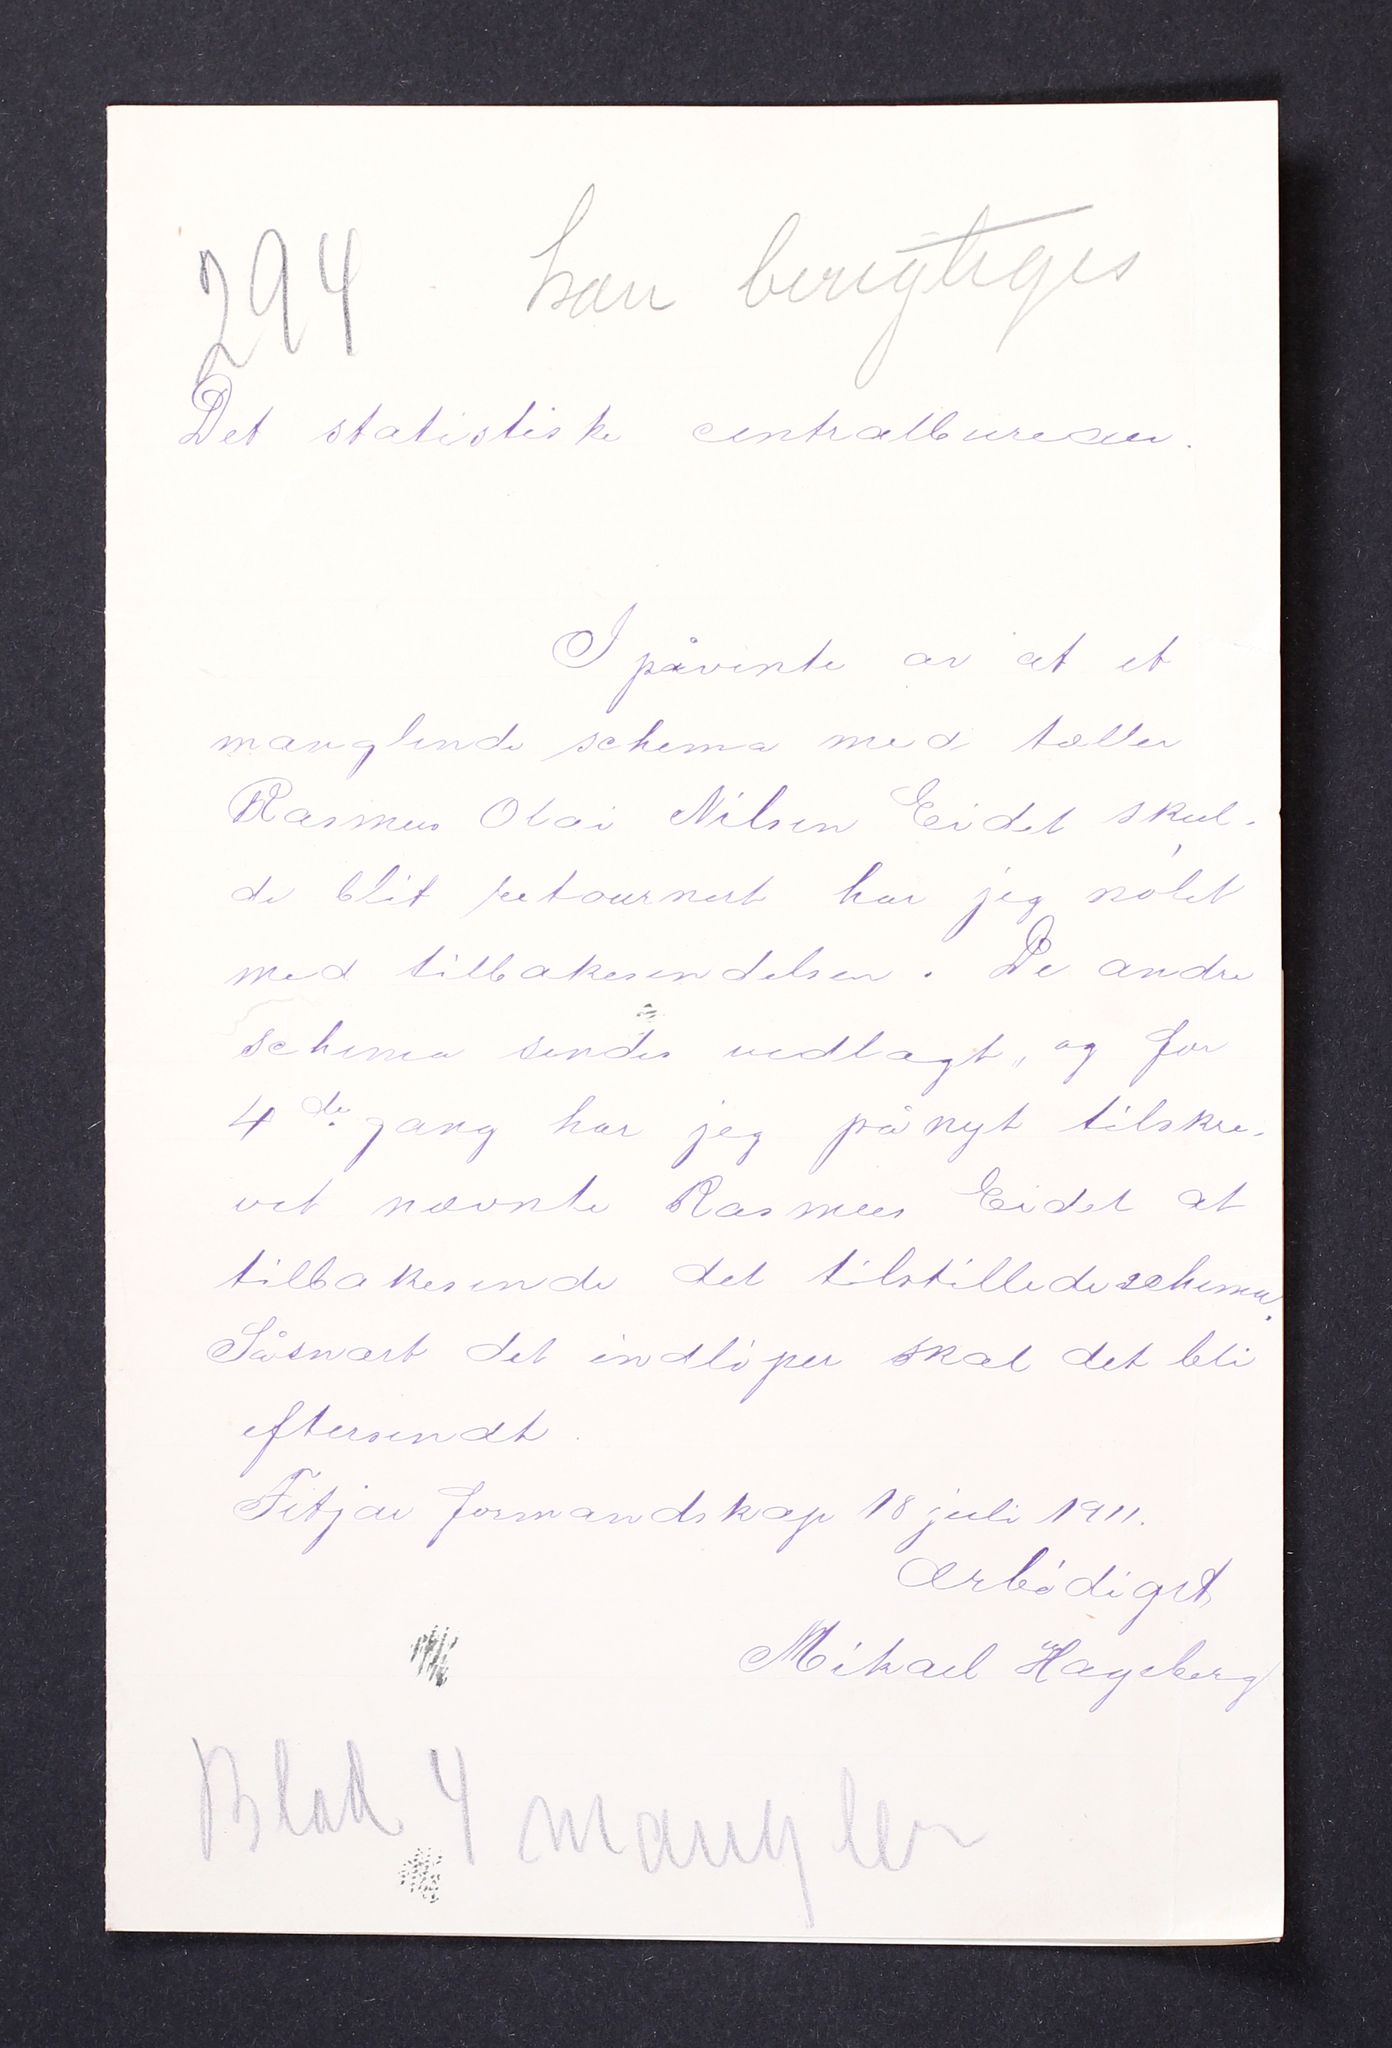 294 kan berigtiges
Det statistiske centralbureau.
I påvente av at et
manglende schema med tæller
Rasmus Olai Nilsen Eidet skul-
de blit retournert har jeg nölet
med tilbakesendelsen. De andre
schema sendes vedlagt, og for
4de gang har jeg pånyt tilskre-
vet nævnte Rasmus Eidet at
tilbakesende det tilstillede schema.
Såsnart det indlöper skal det bli
eftersendt.
Fitjar formandskap 18 juli 1911.
Ærbödigst
Mikael Hageberg
Blad 4 mangler